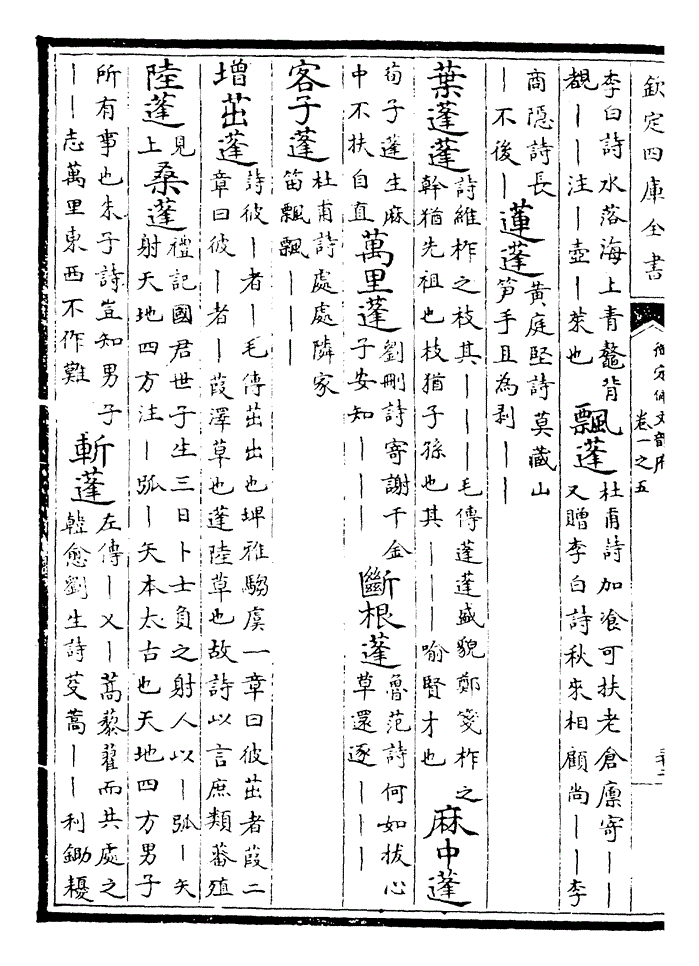 欽定四庫全書
御定佩文韻府
卷一之五
三十二
李白詩水落海上青鼇背
覩丨丨注丨壺丨萊也
飄蓬
杜甫詩加飡可扶老倉廪寄丨丨
又贈李白詩秋來相顧尚丨丨李
商隱詩長
丨不後丨
蓮蓬
黄庭堅詩莫藏山
笋手且為剥丨丨
葉蓬蓬
詩維柞之枝其丨丨丨毛傳蓬蓬盛貌鄭箋柞之
幹猶先祖也枝猶子孫也其丨丨丨喻賢才也
麻中蓬
荀子蓬生麻
中不扶自直
萬里蓬
劉刪詩寄謝千金
子安知丨丨丨
斷根蓬
魯范詩何如拔心
草還逐丨丨丨
客子蓬
杜甫詩處處隣家
笛飄飄丨丨丨
增茁蓬
詩彼丨者丨毛傳茁出也埤雅騶虞一章曰彼茁者葭二
章曰彼丨者丨葭澤草也蓬陸草也故詩以言庶類蕃殖
陸蓬
見
上
桑蓬
禮記國君世子生三日卜士負之射人以丨弧丨矢
射天地四方注丨弧丨矢本太古也天地四方男子
所有事也朱子詩豈知男子
丨丨志萬里東西不作難
斬蓬
左傳丨乂丨蒿藜藋而共處之
韓愈劉生詩芟蒿丨丨利鋤耰